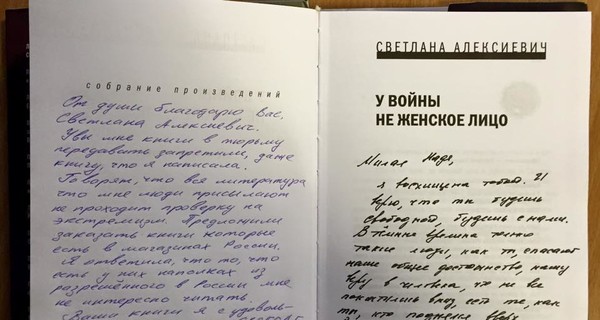 собрание произведений
От души благодарю Вас,
Светлана Алексиевич.
Увы мне книги в тюрьму
передавать запретили, даже
книгу, что я написала.
Говорят, что вся литература
что мне люди присылают
не проходит проверку на
экстремизм. Предложили
заказать книги которые
есть в магазинах России.
Я ответила, что то, что
есть у них на полках из
разрешённого в России мне
не интересно читать.
Ваши книги я с удоволь-
СВЕТЛАНА АЛЕКСИЕВИЧ
У ВОЙНЫ
НЕ ЖЕНСКОЕ ЛИЦО
Милая Надя,
я восхищена тобой. И
верю, что ты будешь
свободной, будешь с нами.
В тёмные времена только
такие люди, как ты, спасают
наше общее достоинство, нашу
веру в человека, что не все
покатились вниз, есть те, как
ты, кто поднялся вверх